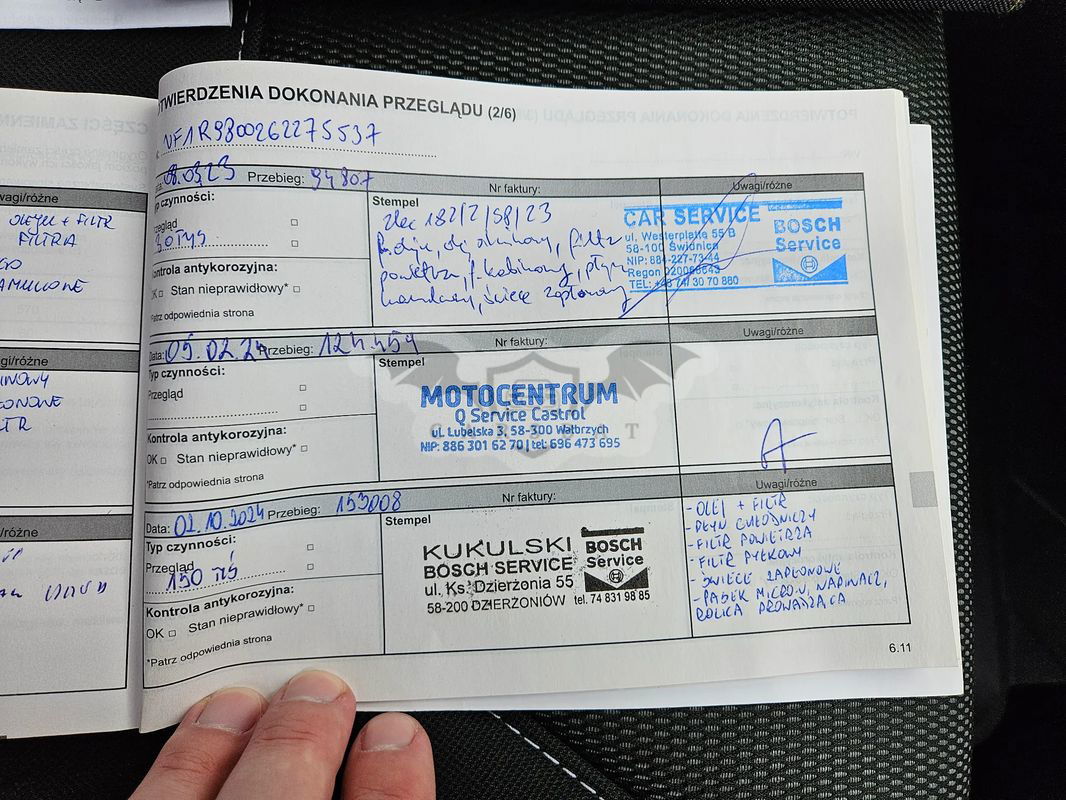 CZĘŚCI ZAMIENN
wagi/różne
OLEJU + FILTR
FILTRA
/różne
/różne
TWIERDZENIA DOKONANIA PRZEGLĄDU (2/6)
VF1R9800262275537
08.03.23 Przebieg: 94807 Nr faktury: Uwagi/różne
p czynności:
zegląd
30 tyś
ontrola antykorozyjna:
OK Stan nieprawidłowy*
Patrz odpowiednia strona
Stempel
zlec 182/2/SB/23
powietrza, f. kabinowy, płyn
hamulcowy, świece zapłonowe
CAR SERVICE
ul. Westerplatte 55 B
58-100 Świdnica
NIP: 884-227-73-44
TEL: +48 74/ 30 70 880
BOSCH
Service
Data: 05.02.24 Przebieg: 124.454 Nr faktury: Uwagi/różne
Typ czynności:
Przegląd
Kontrola antykorozyjna:
OK Stan nieprawidłowy*
*Patrz odpowiednia strona
Stempel
MOTOCENTRUM
Q Service Castrol
ul. Lubelska 3, 58-300 Wałbrzych
NIP: 886 301 62 70 | tel: 696 473 695
Data: 02.10.2024 Przebieg: 153008 Nr faktury: Uwagi/różne
Typ czynności:
Przegląd
150 tyś
Kontrola antykorozyjna:
OK Stan nieprawidłowy*
*Patrz odpowiednia strona
Stempel
KUKULSKI
BOSCH SERVICE
ul. Ks. Dzierżonia 55
58-200 DZIERŻONIÓW
BOSCH
Service
tel. 74 831 98 85
- OLEJ + FILTR
- PŁYN CHŁODNICZY
- FILTR POWIETRZA
- FILTR PYŁKOWY
- ŚWIECE ZAPŁONOWE
- PASEK MICRO-V, NAPINACZ,
ROLKA PROWADZĄCA
6.11